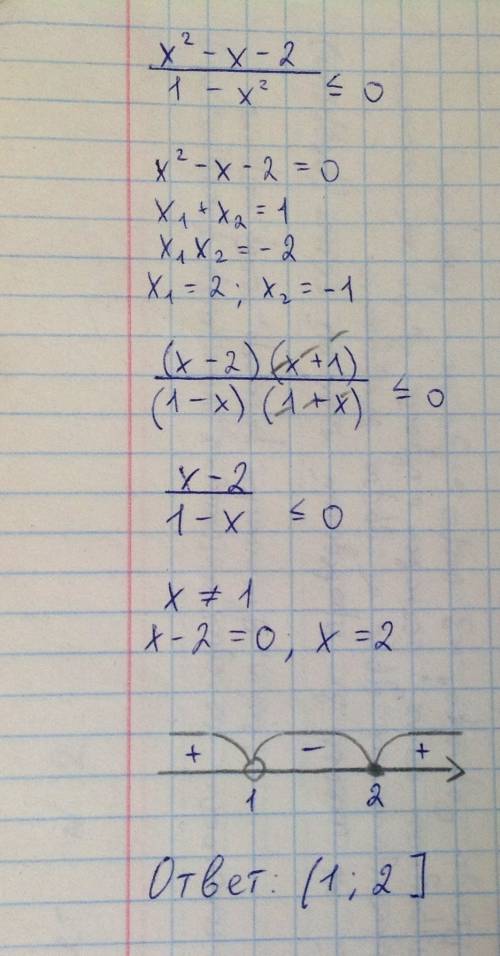 x² - x - 2
1 - x² ≤ 0
x² - x - 2 = 0
x₁ + x₂ = 1
x₁ x₂ = - 2
x₁ = 2 ; x₂ = -1
(x - 2) (x + 1)
(1 - x) (1 + x) ≤ 0
x - 2
1 - x ≤ 0
x ≠ 1
x - 2 = 0 ; x = 2
+ - +
1 2
Ответ: (1 ; 2]